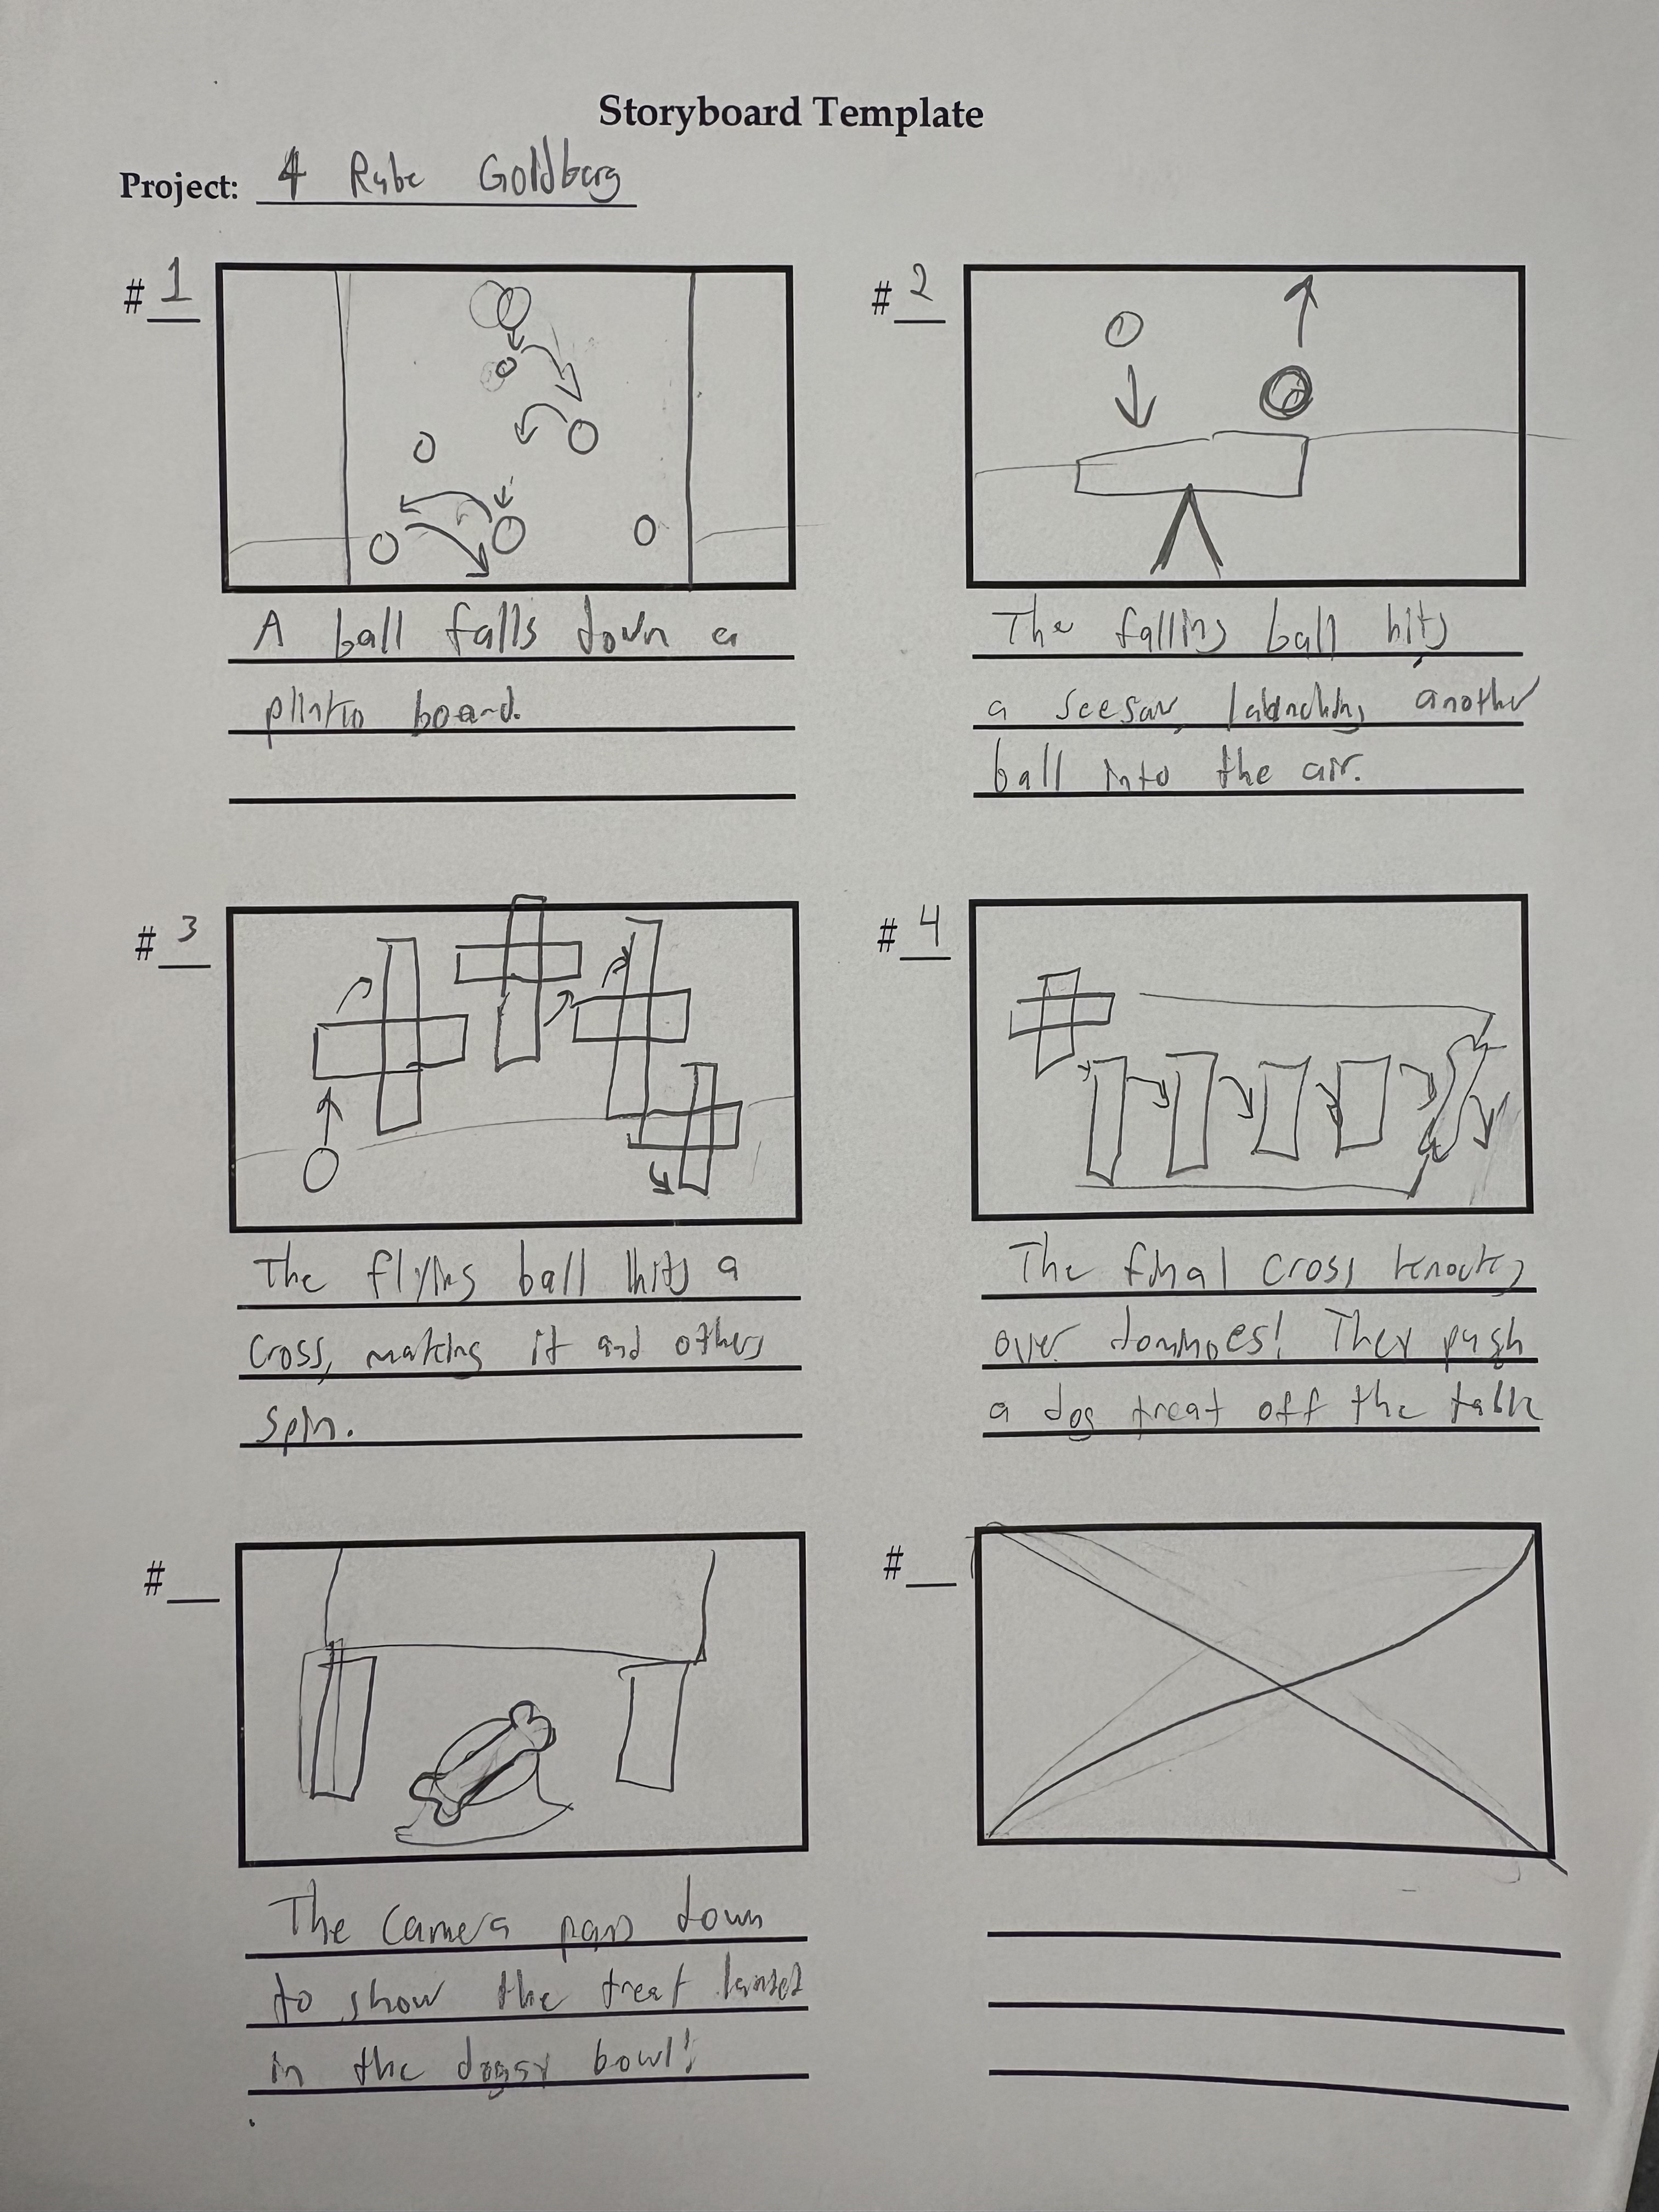 Storyboard Template
Project: 4 Rube Goldberg
# 1
A ball falls down a
plinko board.
# 2
The falling ball hits
a seesaw, launching another
ball into the air.
# 3
The flying ball hits a
cross, making it and others
spin.
# 4
The final cross knocks
over dominoes! They push
a dog treat off the table
#
The camera pans down
to show the treat landed
in the doggy bowl!
#